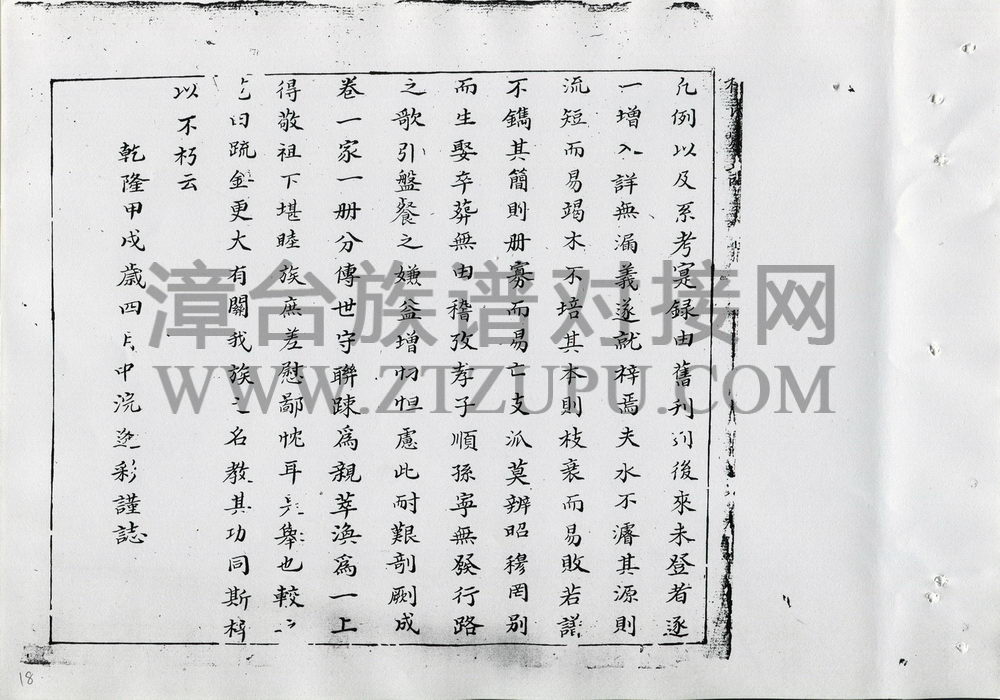 凡例以及系考寔録由舊刊列後來未登者逐
一增入詳無漏義遂就梓焉夫水不濬其源則
流短而易竭木不培其本則枝衰而易敗若譜
不鐫其簡則册寡而易亡支派莫辨昭穆罔別
而生娶卒葬無由稽攷孝子順孫寧無發行路
之歌引盤餐之嫌益增忉怛慮此耐艱剞劂成
卷一家一册分傳世守聯踈為親萃渙為一上
得敬祖下堪睦族庶差慰鄙忱耳是舉也較
曰䟽金更大有關我族之名教其功同斯梓
以不朽云
乾隆甲戌歲四月中浣 彩謹誌
漳台族谱对接网
WWW.ZTZUPU.COM
18